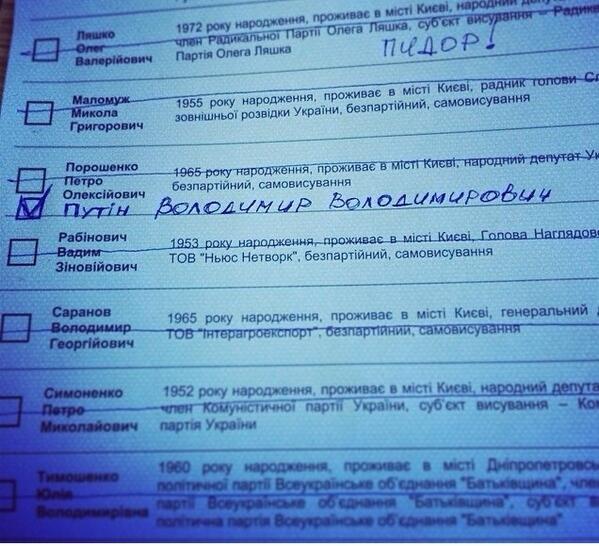 Ляшко
Олег
Валерійович
1972 року народження, проживає в місті Києві, народний
член Радикальної Партії Олега Ляшка, суб'єкт висування – Радика
Партія Олега Ляшка
ПИДОР!
Маломуж
Микола
Григорович
1955 року народження, проживає в місті Києві, радник голови
зовнішньої розвідки України, безпартійний, самовисування
Порошенко
Петро
Олексійович
1965 року народження, проживає в місті Києві, народний депутат Ук
безпартійний, самовисування
Путін Володимир Володимирович
Рабінович
Вадим
Зіновійович
1953 року народження, проживає в місті Києві, Голова Наглядово
ТОВ "Ньюс Нетворк", безпартійний, самовисування
Саранов
Володимир
Георгійович
1965 року народження, проживає в місті Києві, генеральний
ТОВ "Інтерагроекспорт", безпартійний, самовисування
Симоненко
Петро
Миколайович
1952 року народження, проживає в місті Києві, народний депута
член Комуністичної партії України, суб'єкт висування – Ко
партія України
Тимошенко
Юлія
Володимирівна
1960 року народження, проживає в місті Дніпропетровсь
політичної партії Всеукраїнське об'єднання "Батьківщина", член
партії Всеукраїнське об'єднання "Батьківщина", суб'єкт
політична партія Всеукраїнське об'єднання "Батьківщина"